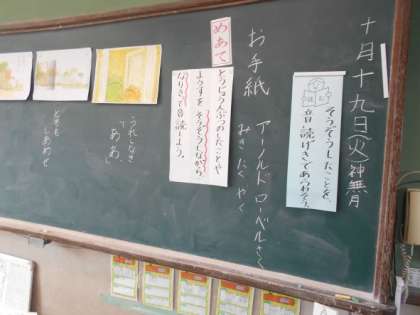 十月十九日(火)神無月
そうぞうしたことを、
音読げきであらわそう。
お手紙
アーノルド・ローベルさく
みき たくやく
めあて
とうじょうじんぶつのしたことや
ようすを そうぞうしながら
なりきって音読しよう。
うれしなき
「ああ。」
とても
しあわせ